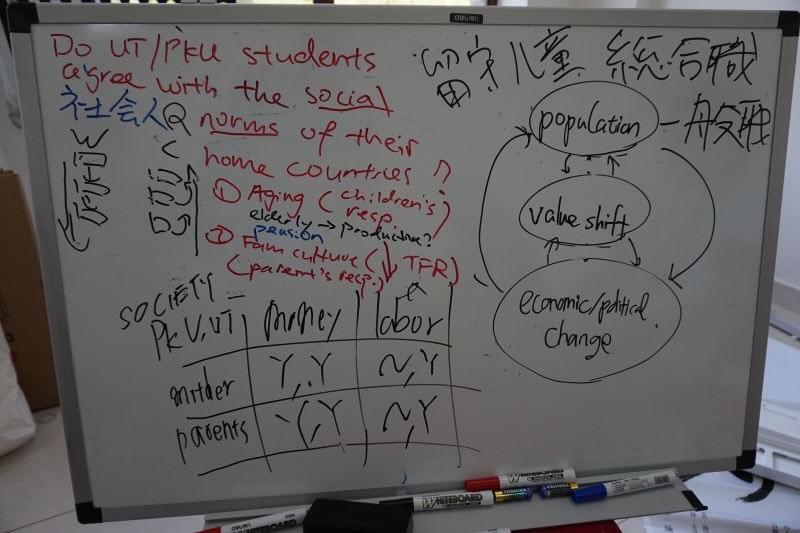 DO UT/PKU students
agree with the social
norms of their
home countries?
① Aging (children's resp)
elderly → productive?
pension
② Fam culture (↓ TFR)
(parent's resp.)
社会人
Q
留守儿童
総合職
一般
population
value shift
economic/political
change
SOCIETY
PKU, UT
money
labor
Y, Y
N, Y
parents
Y, Y
N, Y
WHITEBOARD
WHITEBOARD
WHITEBOARD
TOSHIBA